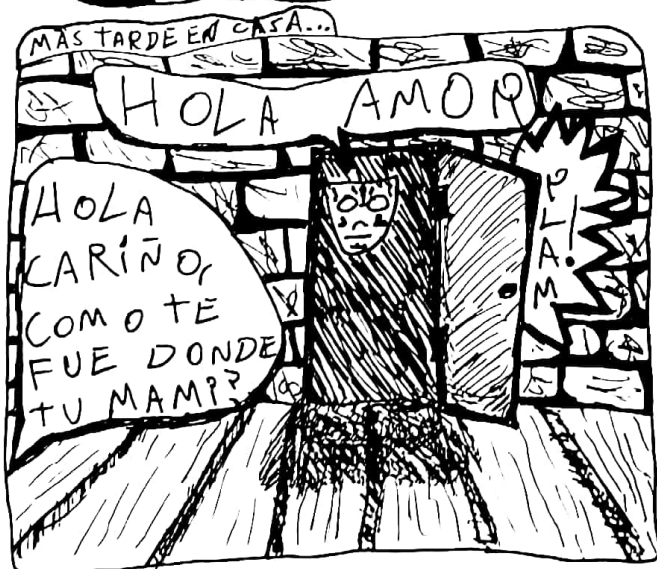 MAS TARDE EN CASA...
HOLA AMOR
PLAM!
HOLA
CARIÑO,
COMO TE
FUE DONDE
TU MAMI?